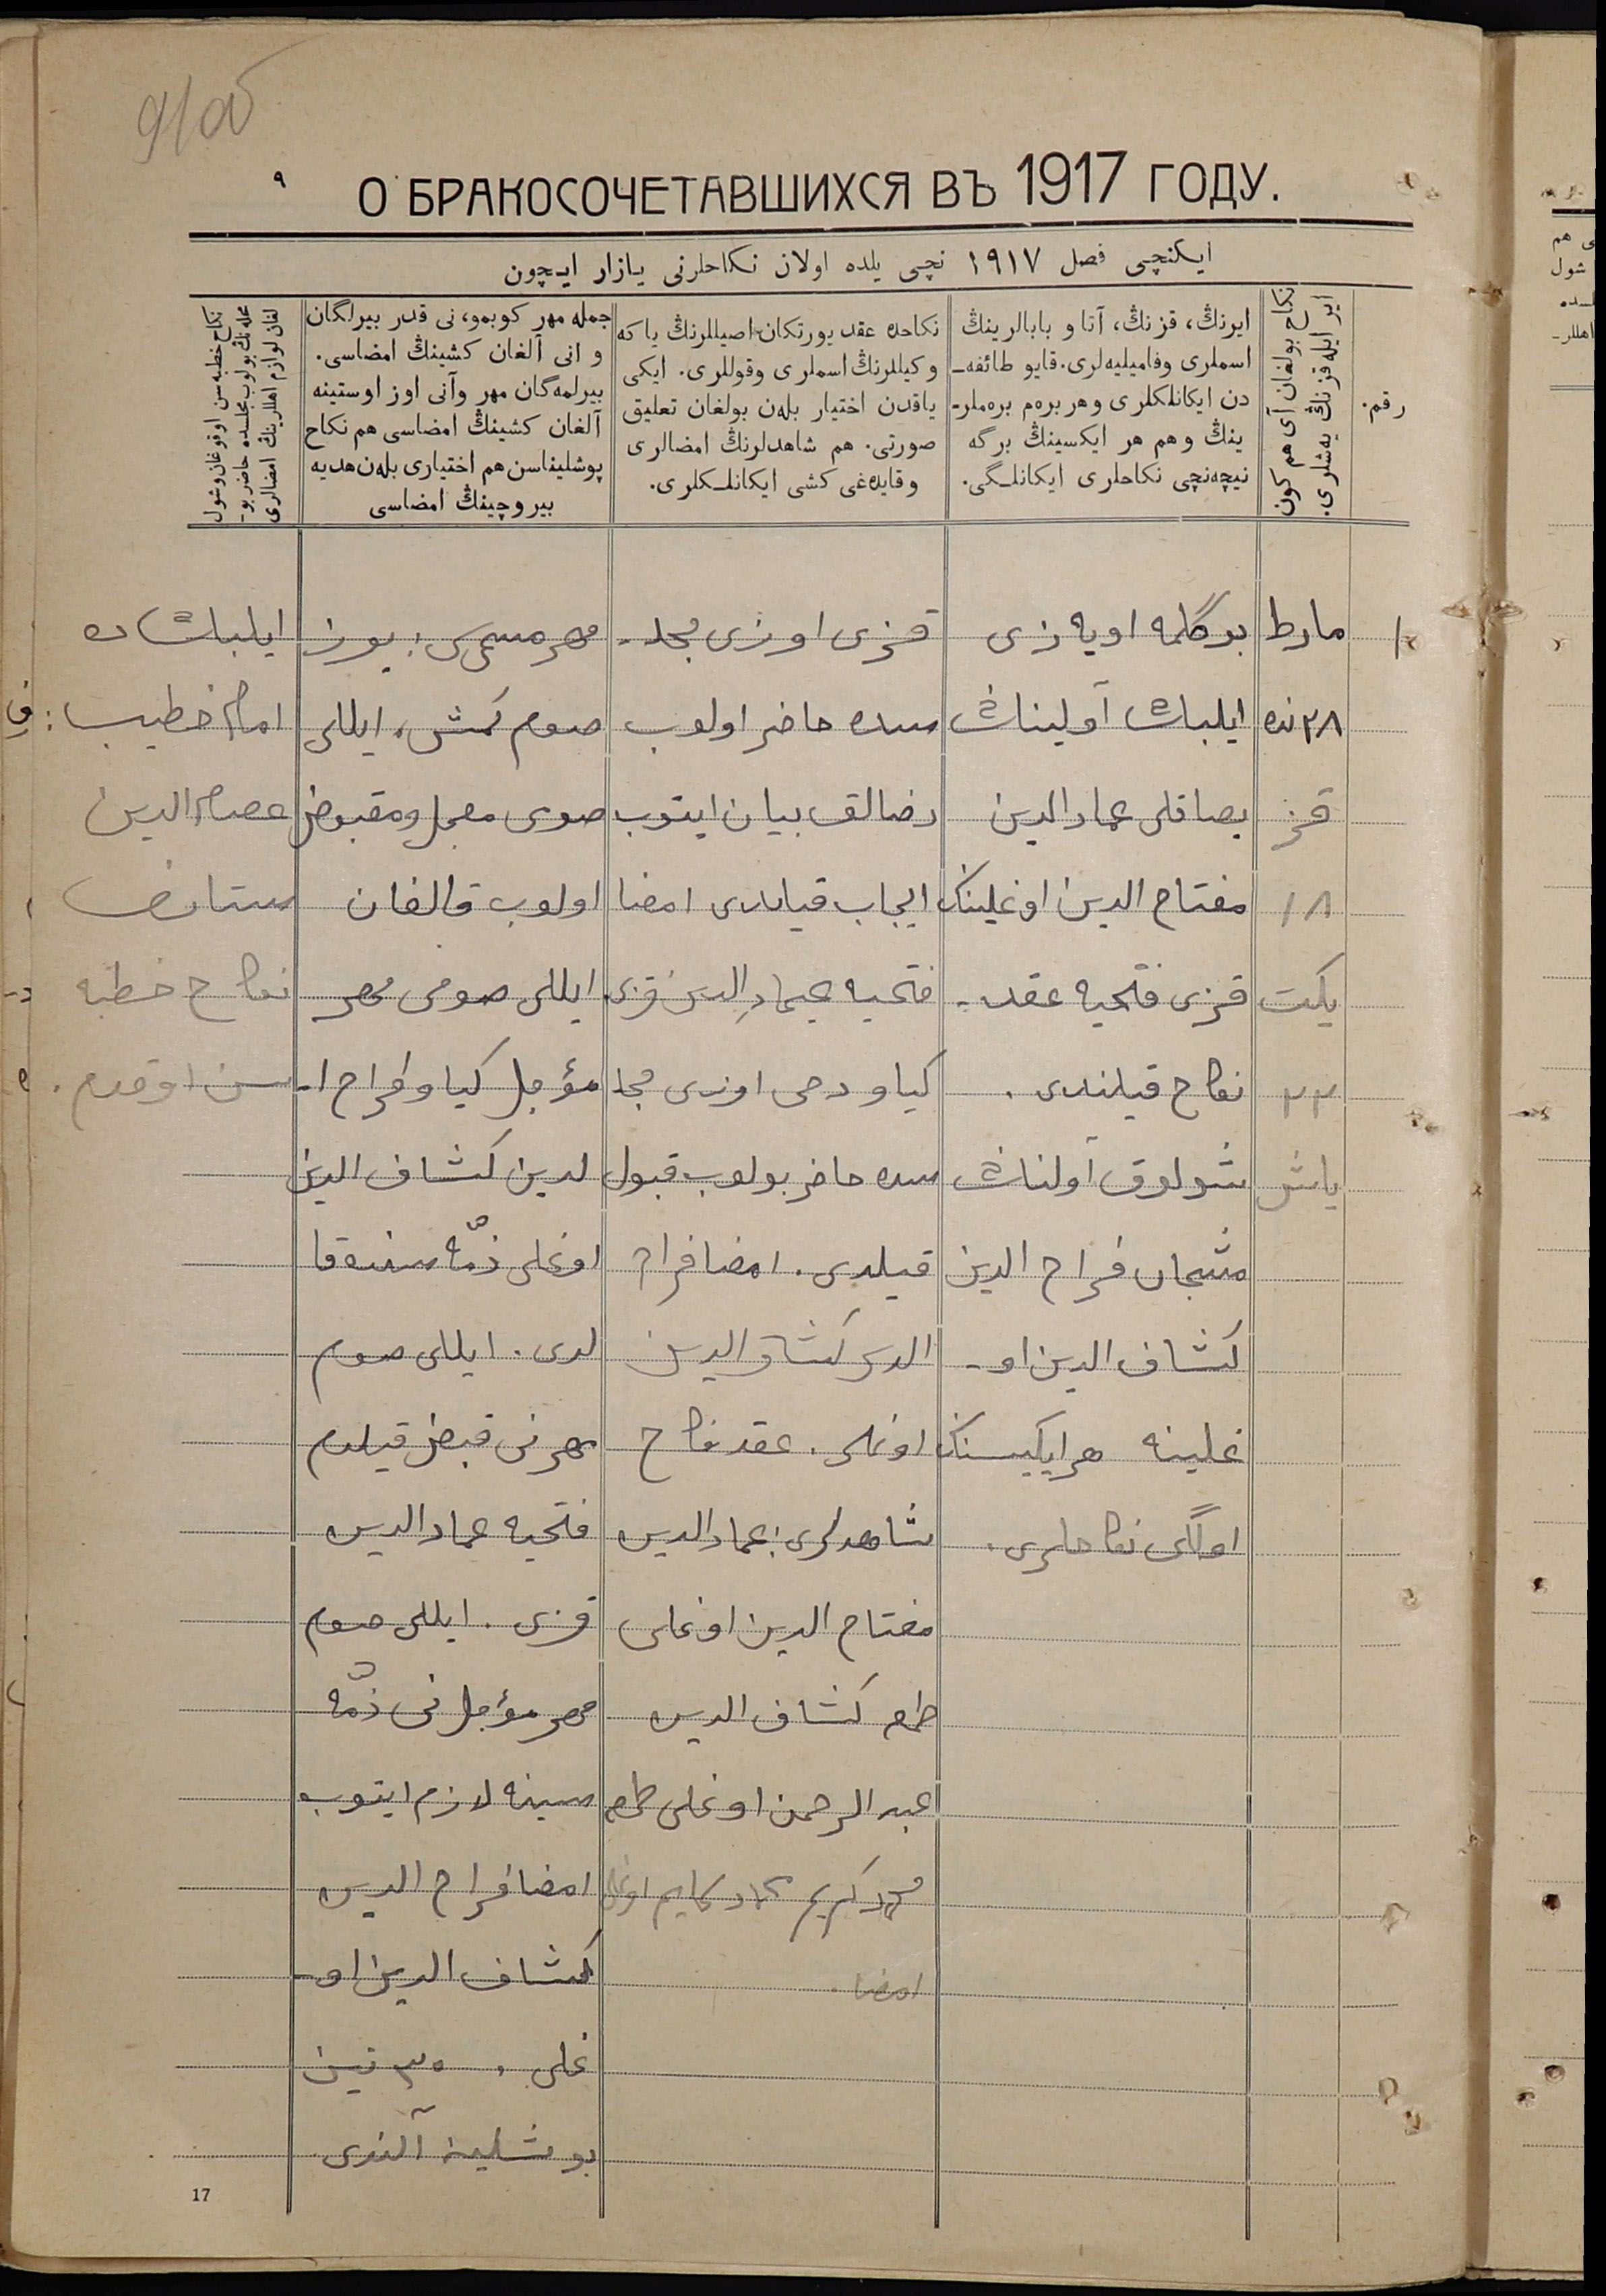 91 об
٩
О БРАКОСОЧЕТАВШИХСЯ ВЪ 1917 ГОДУ.
ایکنچی فصل ١٩١٧ نچی یلده اولان نکاحلرنی یازار ایچون
رقم.
نکاح بولغان آی هم کون
ایر ایله قزنڭ یەشلری.
ایرنڭ، قزنڭ، آتا و بابالرینڭ
اسملری وفامیلیەلری. قایو طائفه‌ـ
دن ایکانلکلری وهر برەم برەملرـ
ینڭ و هم هر ایکسینڭ برگه
نیچەنچی نکاحلری ایکانلـگی.
نکاحده عقد یورتکان اصیللرنڭ یا که
وکیللرنڭ اسملری وقوللری. ایکی
یاقدن اختیار بلەن بولغان تعلیق
صورتی. هم شاهدلرنڭ امضالری
وقایدەغی کشی ایکانلـکلری.
جمله مهر کوبمو، نی قدر بیرلگان
و انی آلغان کشینڭ امضاسی.
بیرلمەگان مهر وآنی اوز اوستینه
آلغان کشینڭ امضاسی هم نکاح
پوشلیناسن هم اختیاری بلەن هدیه
بیروچینڭ امضاسی
نکاح خطبه سن اوقوغان وشول
محله نڭ بولوب مجلسده حاضر بوـ
لغان لوازم اهللرینڭ امضالری
١
مارط
٢٨ نده
قز
١٨
یکت
٢٢
یاش
بوگلمه اویه زی
ایلباش آولیناڭ
یصاقلی عمادالدین
مفتاح الدین اوغلینڭ
قزی فتحیه عقد ـ
نکاح قیلندی.
شولوق آولناڭ
مشجان فراح الدین
کشاف الدین او ـ
غلینه هر ایکیسنڭ
اولگی نکاحلری.
قزی اوزی مجلـ
سده حاضر اولوب
رضالق بیان ایتوب
ایجاب قیلدی امضا
فتحیه عمادالدین قزی
کیاو دخی اوزی مجلـ
سده حاضر بولوب قبول
قیلدی. امضا فراح
الدین کشاف الدین
اوغلی. عقد نکاح
شاهدلری: عمادالدین
مفتاح الدین اوغلی
طمغه کشاف الدین
عبدالرحمن اوغلی طمغه
محمد کریم
امضا.
مهر مسمی: یوز
صوم کمش، ایللی
صومی معجل ومقبوض
اولوب قالغان
ایللی صومی مهر
مؤجل کیاو فراح اـ
لدین کشاف الدین
اوغلی ذمّه سنده قا
لدی. ایللی صوم
مهرنی قبض قیلدم
فتحیه عمادالدین
قزی. ایللی صوم
مهر مؤجل نی ذمّه
سینه لازم ایتوب
امضا فراح الدین
کشاف الدین اوـ
غلی. ٣٠ تین
بوشلینه آلندی
ایلباشده
امام خطیب:
عصام الدین
ستارف
نکاح خطبه
سن اوقدم.
17